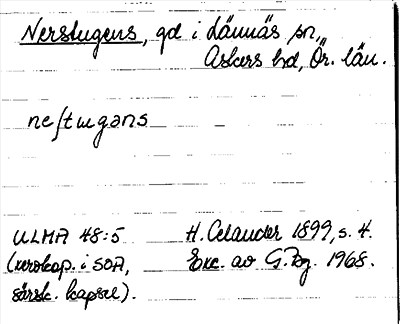 Nerstugens, gd i Lännäs sn,
Askers hd, Ör. län.
neʃtugəns
ULMA 48:5
(xerokop. i SOA,
särsk. kapsel).
H. Celander 1899, s. 4.
Exc. av G. Bg. 1968.